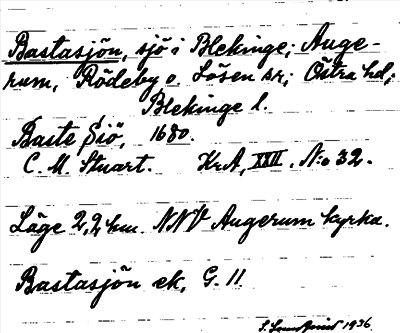 Bastasjön, sjö i Blekinge; Auge-
rum, Rödeby o. Lösen sr; Östra hd;
Blekinge l.
Baste Siö, 1680.
C. M. Stuart. KrA, XXII, N:o 32.
Läge 2,2 km. NNV Augerum kyrka.
Bastasjön ek, G. 11
1936